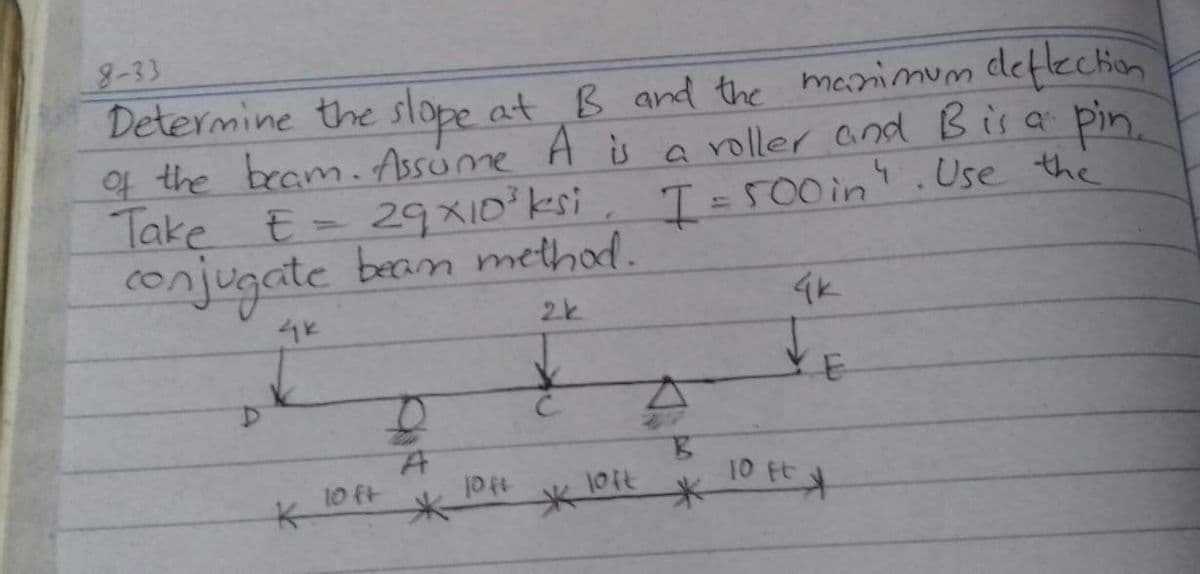 8-33
Determine the slope at B and the maximum deflection
of the beam. Assume A is a roller and B is a pin.
Take E = 29×10³ ksi, I = 500 in⁴. Use the
conjugate beam method.
4k 2k 4k
D C E
A B
10 ft 10ft 10ft 10 ft